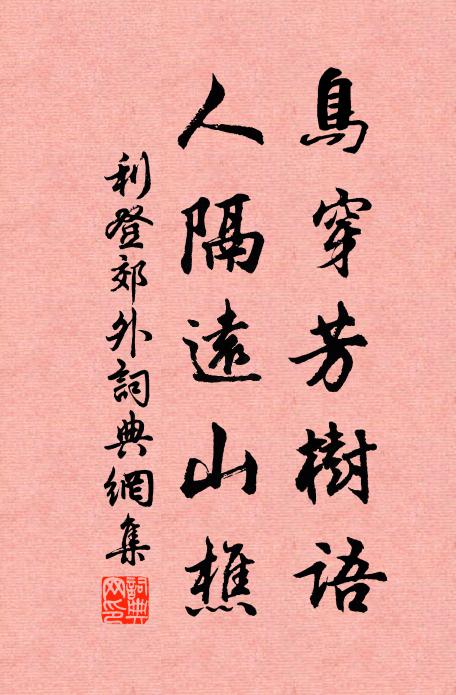 鳥穿芳樹語
人隔遠山樵
利登郊外詞典網集
詞典
网印